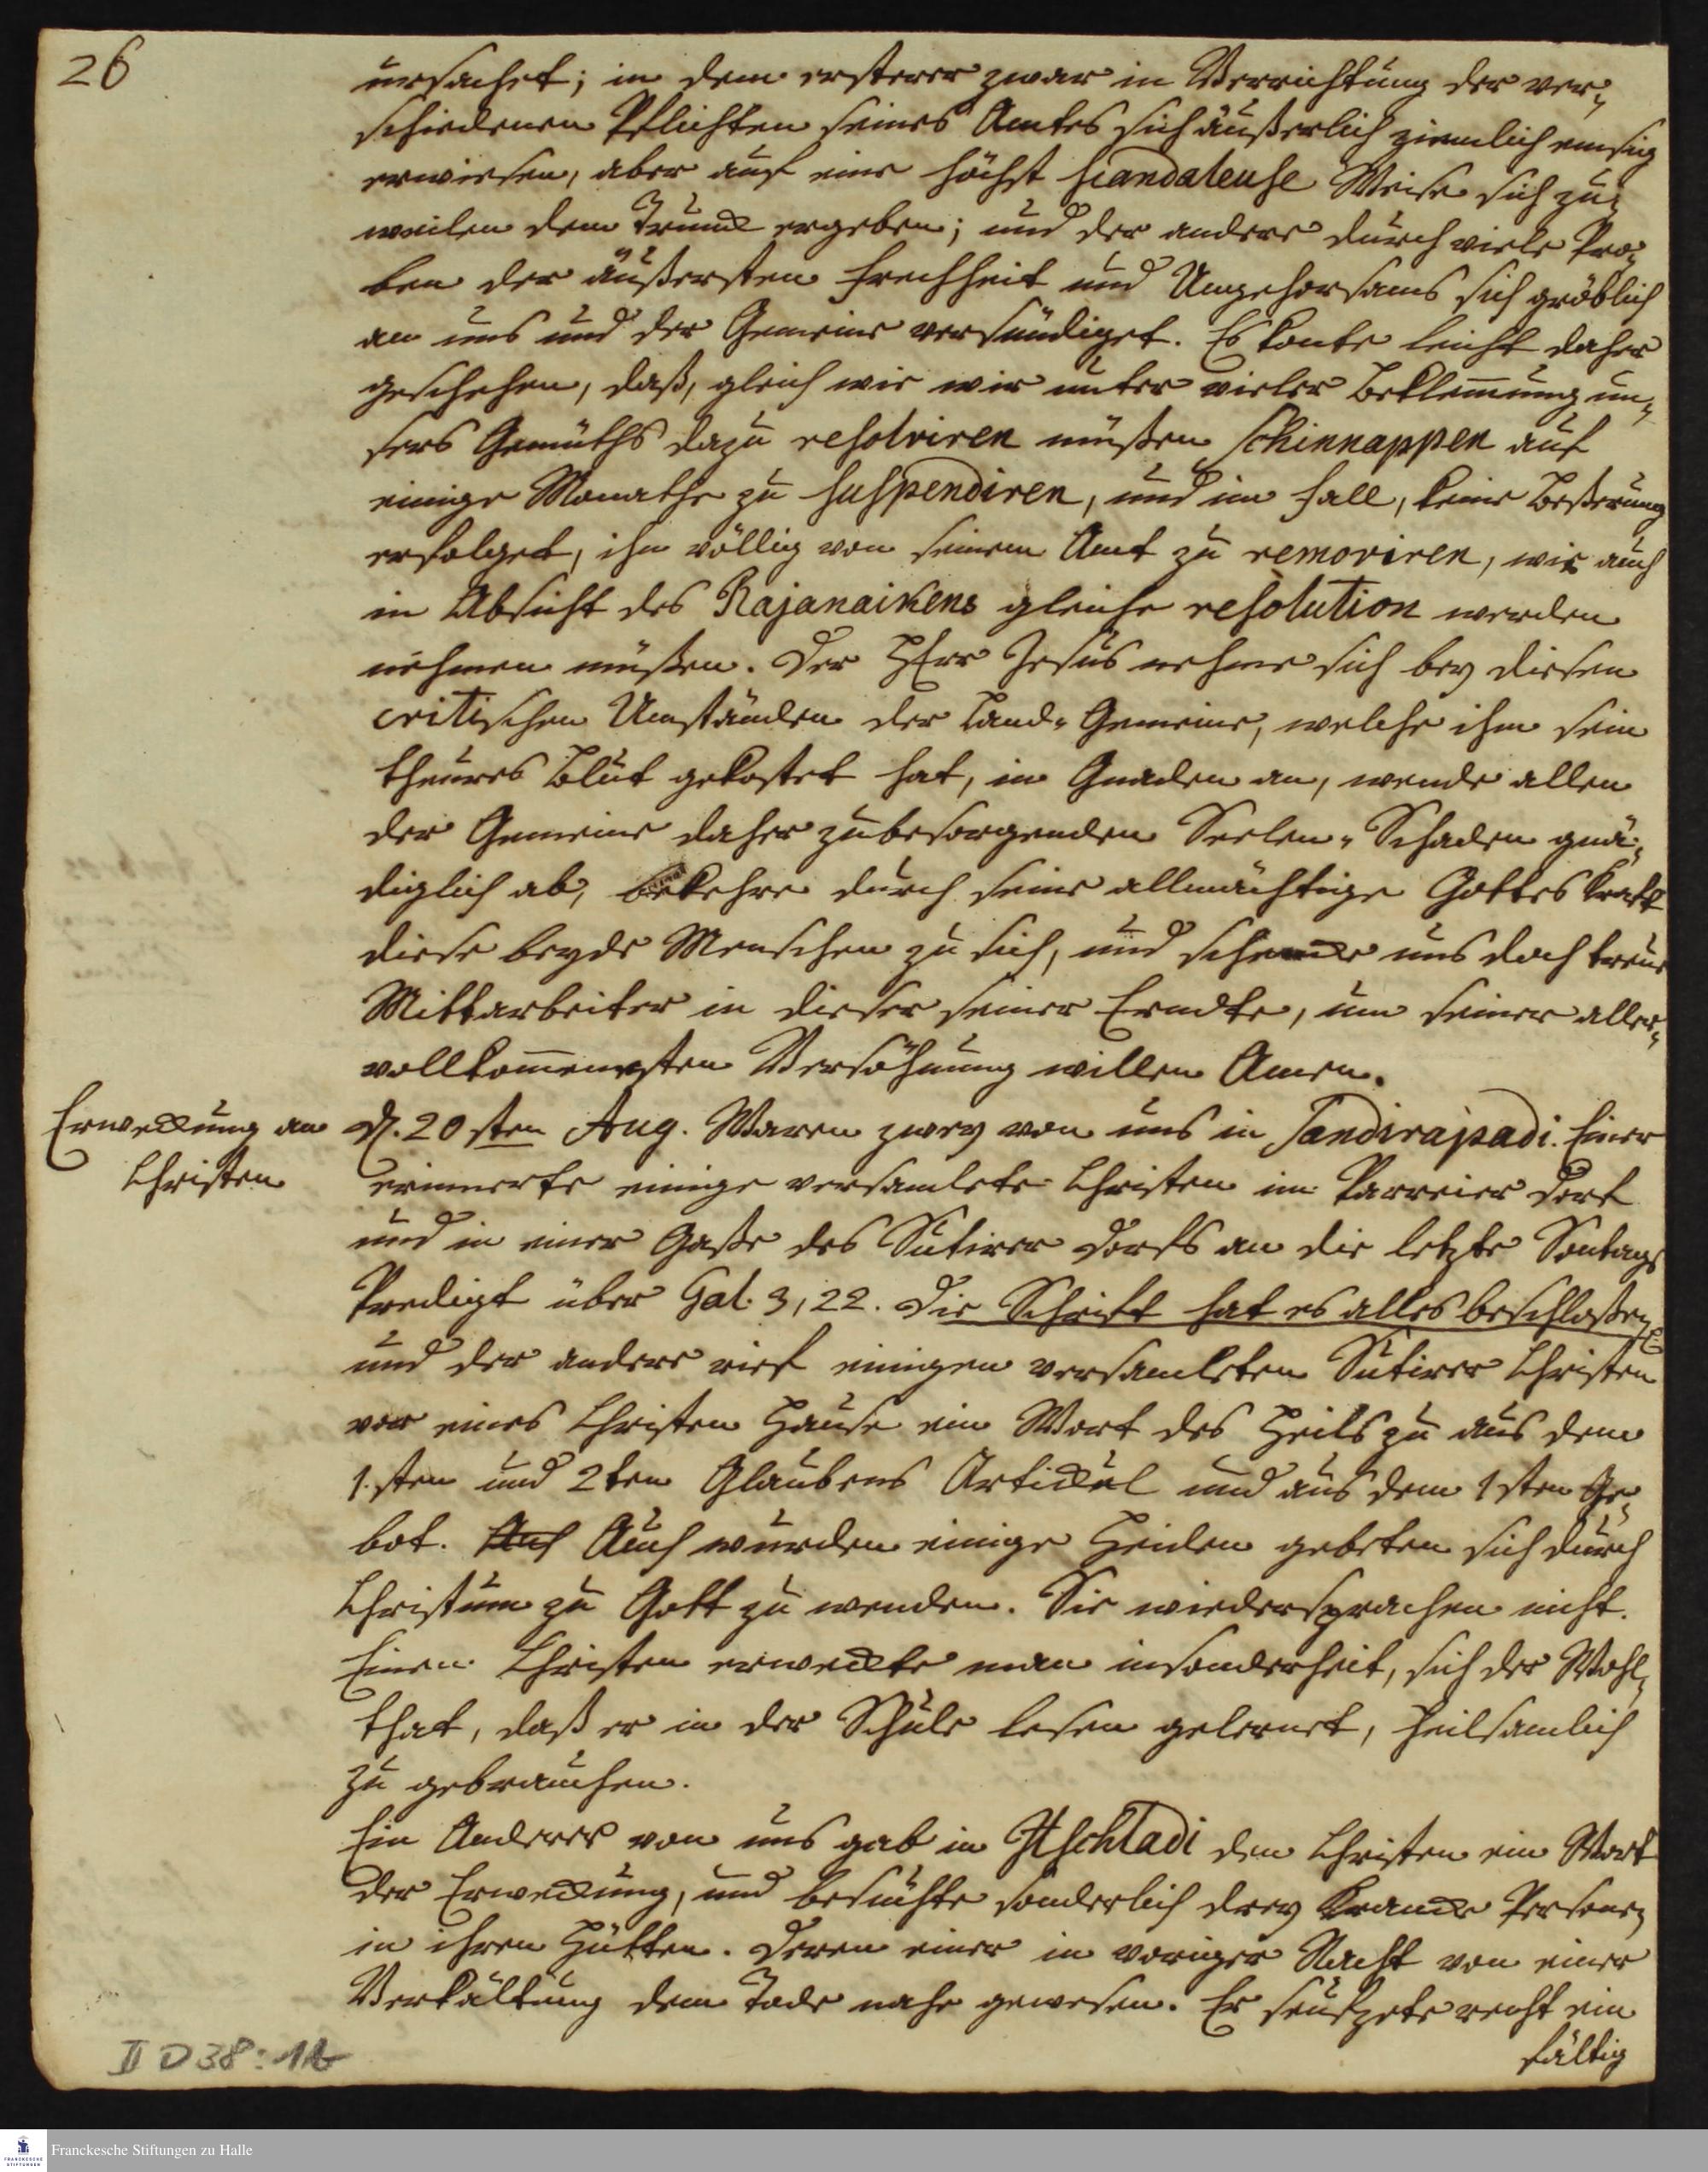 26
ursachet; in dem ersterer zwar in Verrichtung der ver-
schiedenen Pflichten seines Amtes sich äußerlich ziemlich emsig
erwiesen, aber auf eine höchst scandaleuse Weise sich zu-
weilen dem Trunck ergeben; und der andere durch viele Pro-
ben der äußersten Frechheit und Ungehorsams sich gröblich
an uns und der Gemeine versündiget. Es konte leicht daher
geschehen, daß, gleich wie wir unter vieler Beklem̄ung un-
sers Gemüths dazu resolviren müßen Schinnappen auf
einige Monathe zu suspendiren, und im Fall, keine Beßerung
erfolget, ihn völlig von seinem Amt zu removiren, wir auch
in Absicht des Rajanaikens gleiche resolution werden
nehmen müßen. Der HErr Jesus nehme sich bey diesen
critischen Umständen der Land-Gemeine, welche ihm sein
theures Blut gekostet hat, in Gnaden an, wende allen
der Gemeine daher zubesorgenden Seelen-Schaden gnä-
diglich ab, bekehre durch seine allmächtige Gottes Kraft
diese beyde Menschen zu sich, und schencke uns doch treue
Mittarbeiter in dieser seiner Erndte, um seiner aller-
vollkom̄ensten Versöhnung willen Amen.
Erweckung an
Christen
D. 20sten Aug. Waren zwey von uns in Sandirapadi. Einer
erinnerte einige versamlete Christen im Parreier Dorf
und in einer Gaße des Sutirer Dorfs an die letzte Sontags
Predigt über Gal. 3, 22. Die Schrift hat es alles beschloßen
und der andere rief einigen versamleten Sutirer Christen
vor eines Christen Hause ein Wort des Heils zu aus dem
1.sten und 2ten Glaubens Artickul und aus dem 1sten Ge-
bot. Auch Auch wurden einige Heiden gebeten sich durch
Christum zu Gott zu wenden. Sie wiedersprachen nicht.
Einen Christen erweckte man insonderheit, sich der Wohl-
that, daß er in der Schule lesen gelernet, heilsamlich
zu gebrauchen.
Ein Anderer von uns gab in Ittschladi den Christen ein Wort
der Erweckung, und besuchte sonderlich drey krancke Personen
in ihren Hütten. Deren einer in voriger Nacht von einer
Verkältung dem Tode nahe gewesen. Er seufzete recht ein
fältig
II D 38: 1b
Franckesche Stiftungen zu Halle